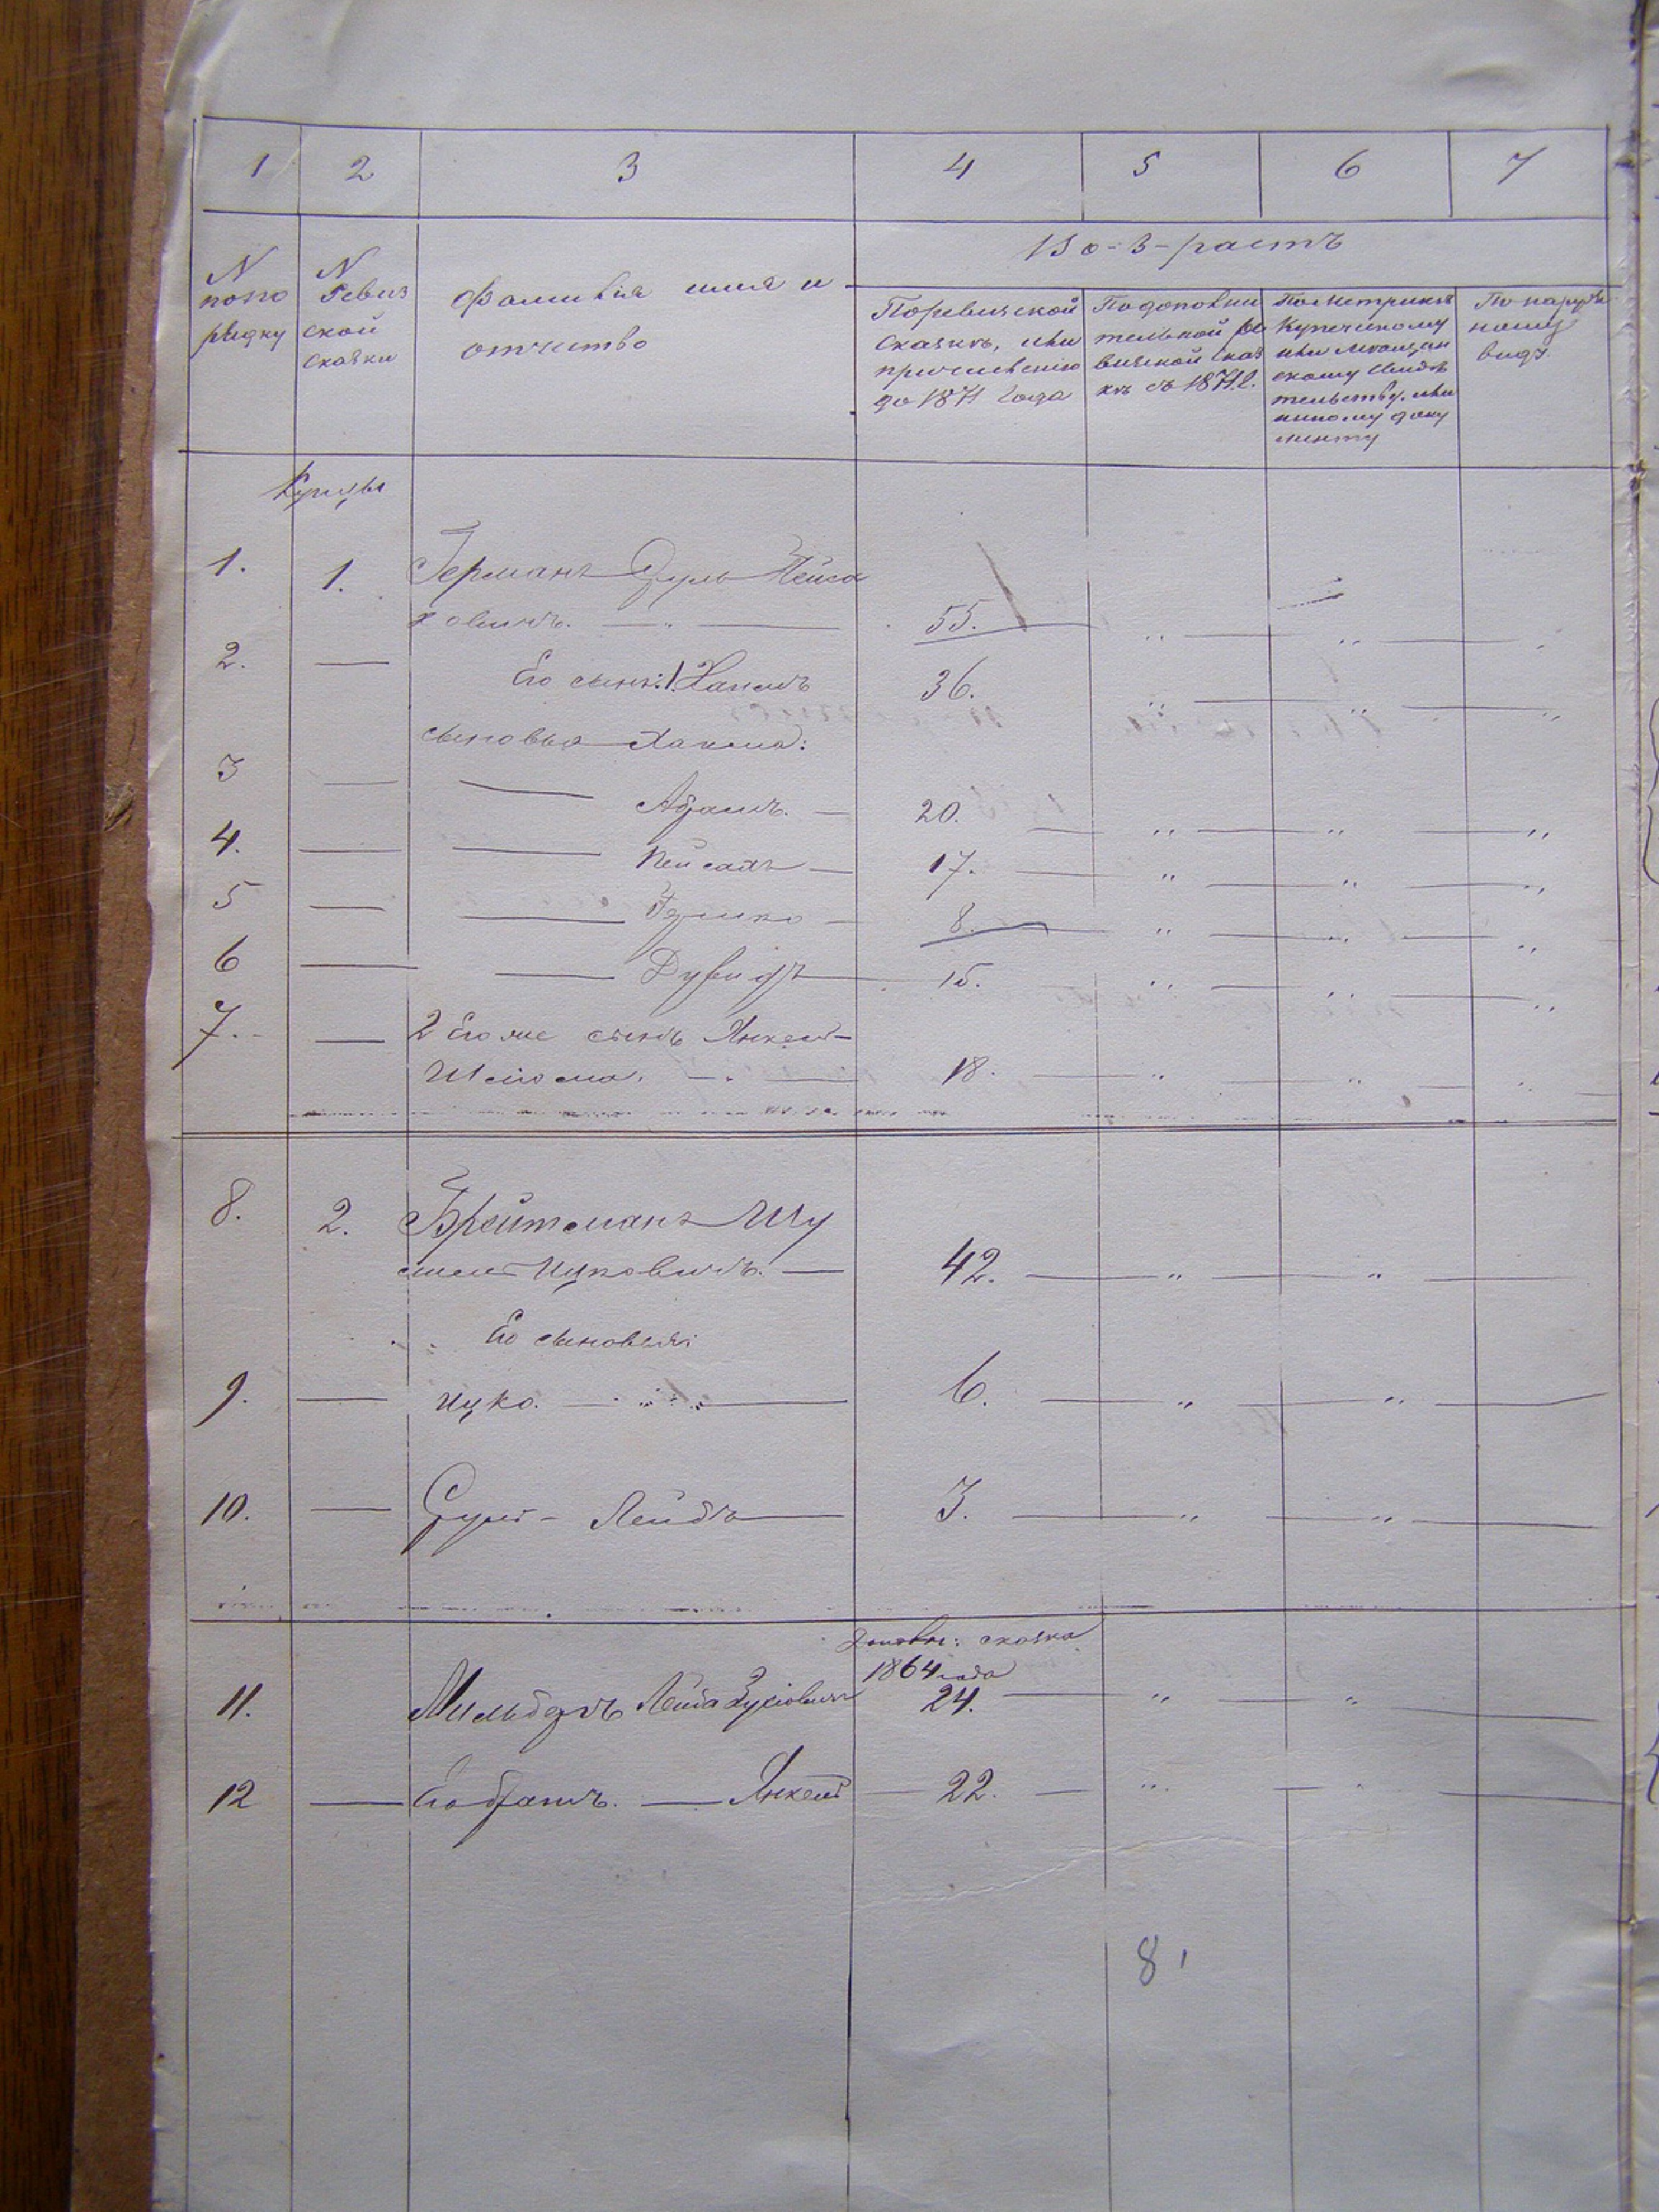 1 2 3 4 5 6 7
N попо рядку
N Ревиз ской сказки
Фамилія имя и отчество
Во-з-растъ
По ревизской сказкѣ, или причисленію до 1871 года
По дополни тельной ре визской сказ кѣ съ 1871 г.
По метрикѣ Купеческому или мѣщан скому свидѣ тельству, или иному доку менту
По наруж ному виду.
Купцы
1. 1. Германъ Дуль Пейса
ховичъ. 55.
2. — Его сынъ: 1. Хаимъ 36.
сыновья Хаима:
3 — — Абрамъ. — 20.
4. — — Пейсахъ — 17.
5 — — Гершко — 8.
6 — — Дувидъ — 15.
7. — 2 Его же сынъ Янкель-
Шлиома. — 18.
8. 2. Бройтманъ Шу
лимъ Ицковичъ. — 42.
Его сыновья:
9. — Ицко. — 6.
10. — Сруль - Лейбъ — 3.
Дополн: сказка
1864 года
11. Мильбергъ Лейба 24.
12 — Его братъ. — Янкель — 22.
81